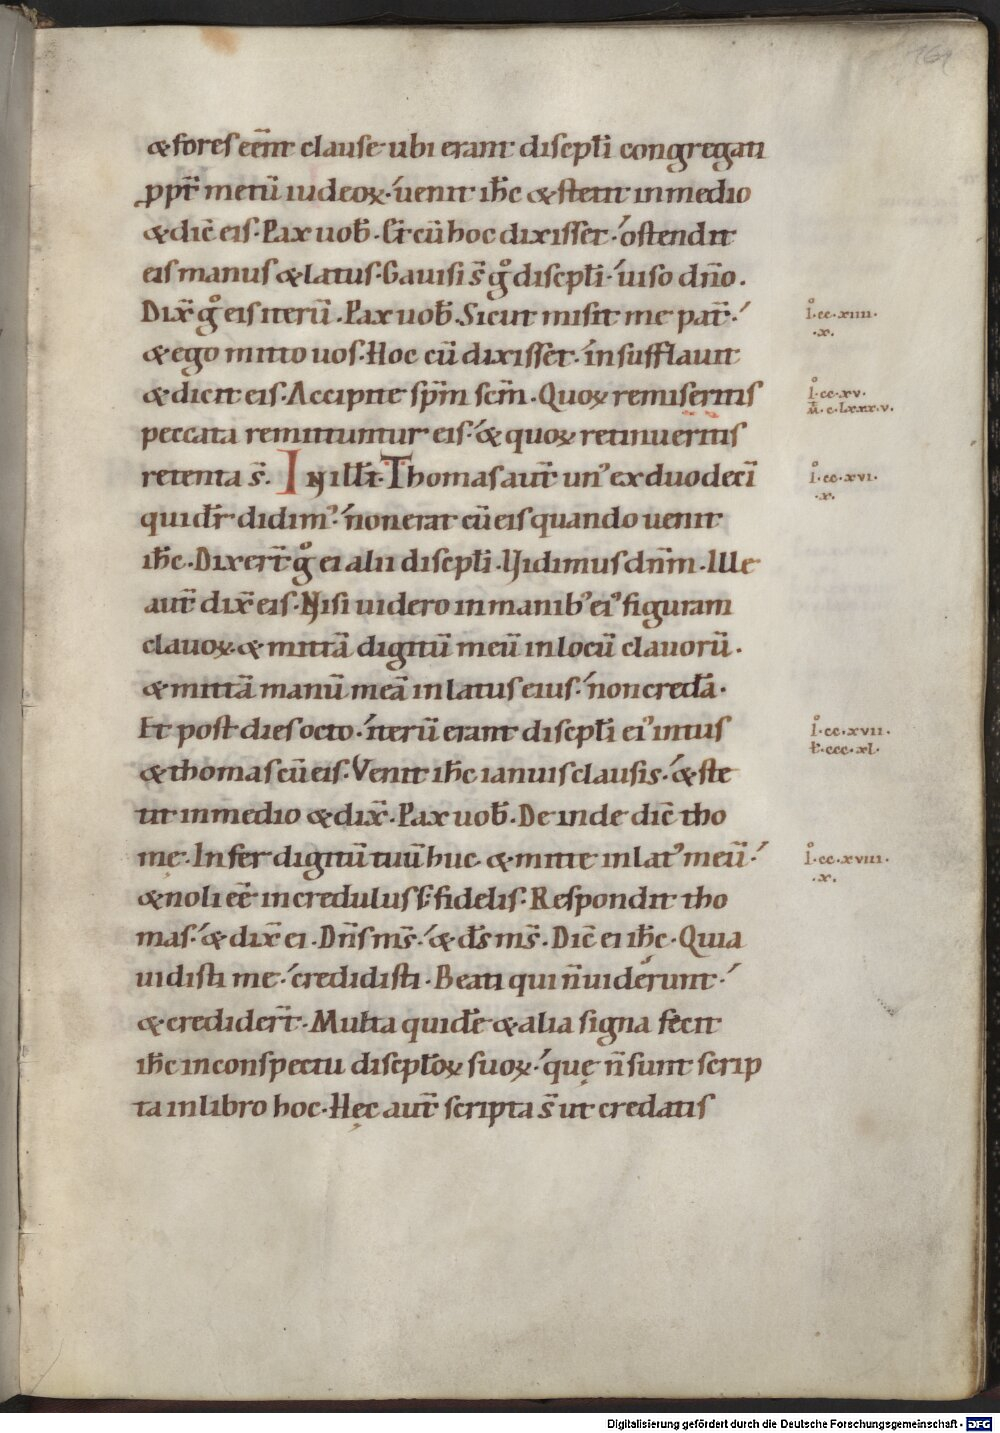 161
& fores eēnt clause ubi erant discipłi congregati
ꝓpt̄ metū iudeoꝝ· uenit ih̄c & stetit in medio
& dic̄ eis· Pax uob̄· Et cū hoc dixisset· ostendit
eis manus & latus· Gauisi s̄ gͦ discipłi· uiso dn̄o.
Dix̄ gͦ eis iterū· Pax uob̄· Sicut misit me pat̄·
& ego mitto uos· Hoc cū dixisset· insufflauit
& dicit eis· Accipite sp̄m sc̄m· Quoꝝ remiseritis
peccata remittuntur eis· & quoꝝ retinueritis
retenta s̄. IN illł t̄· Thomas aut̄ un᾿ ex duodecī
qui dr̄ didim᾿· non erat cū eis quando uenit
ih̄c· Dixer̄t gͦ ei alii discipłi· Vidimus dn̄m· Ille
aut̄ dix̄ eis· Nisi uidero in manib᾿ ei᾿ figuram
clauoꝝ· & mittā digitū meū in locū clauorū·
& mittā manū meā in latus eius· non credā·
Et post dies octo· iterū erant discipłi ei᾿ intus
& thomas cū eis· Venit ih̄c ianuis clausis· & ste
tit in medio & dix̄· Pax uob̄· Deinde dic̄ tho
mę· Infer digitū tuū huc· & mitte in lat᾿ meū·
& noli eē incredulus s; fidelis· Respondit tho
mas· & dix̄ ei· Dn̄s ms̄· & ds̄ ms̄· Dic̄ ei ih̄c· Quia
uidisti me· credidisti· Beati qui n̄ uiderunt·
& credider̄t· Multa quidē & alia signa fecit
ih̄c in conspectu discipłoꝝ suoꝝ· quę n̄ sunt scrip
ta in libro hoc· Hęc aut̄ scripta s̄ ut credatis
Iͦ·cc·xiiii·
·x·
Iͦ·cc·xv·
M̄·c·lxxx·v·
Iͦ·cc·xvi·
·x·
Iͦ·cc·xvii·
ł·ccc·xl·
Iͦ·cc·xviii·
·x·
Digitalisierung gefördert durch die Deutsche Forschungsgemeinschaft - DFG